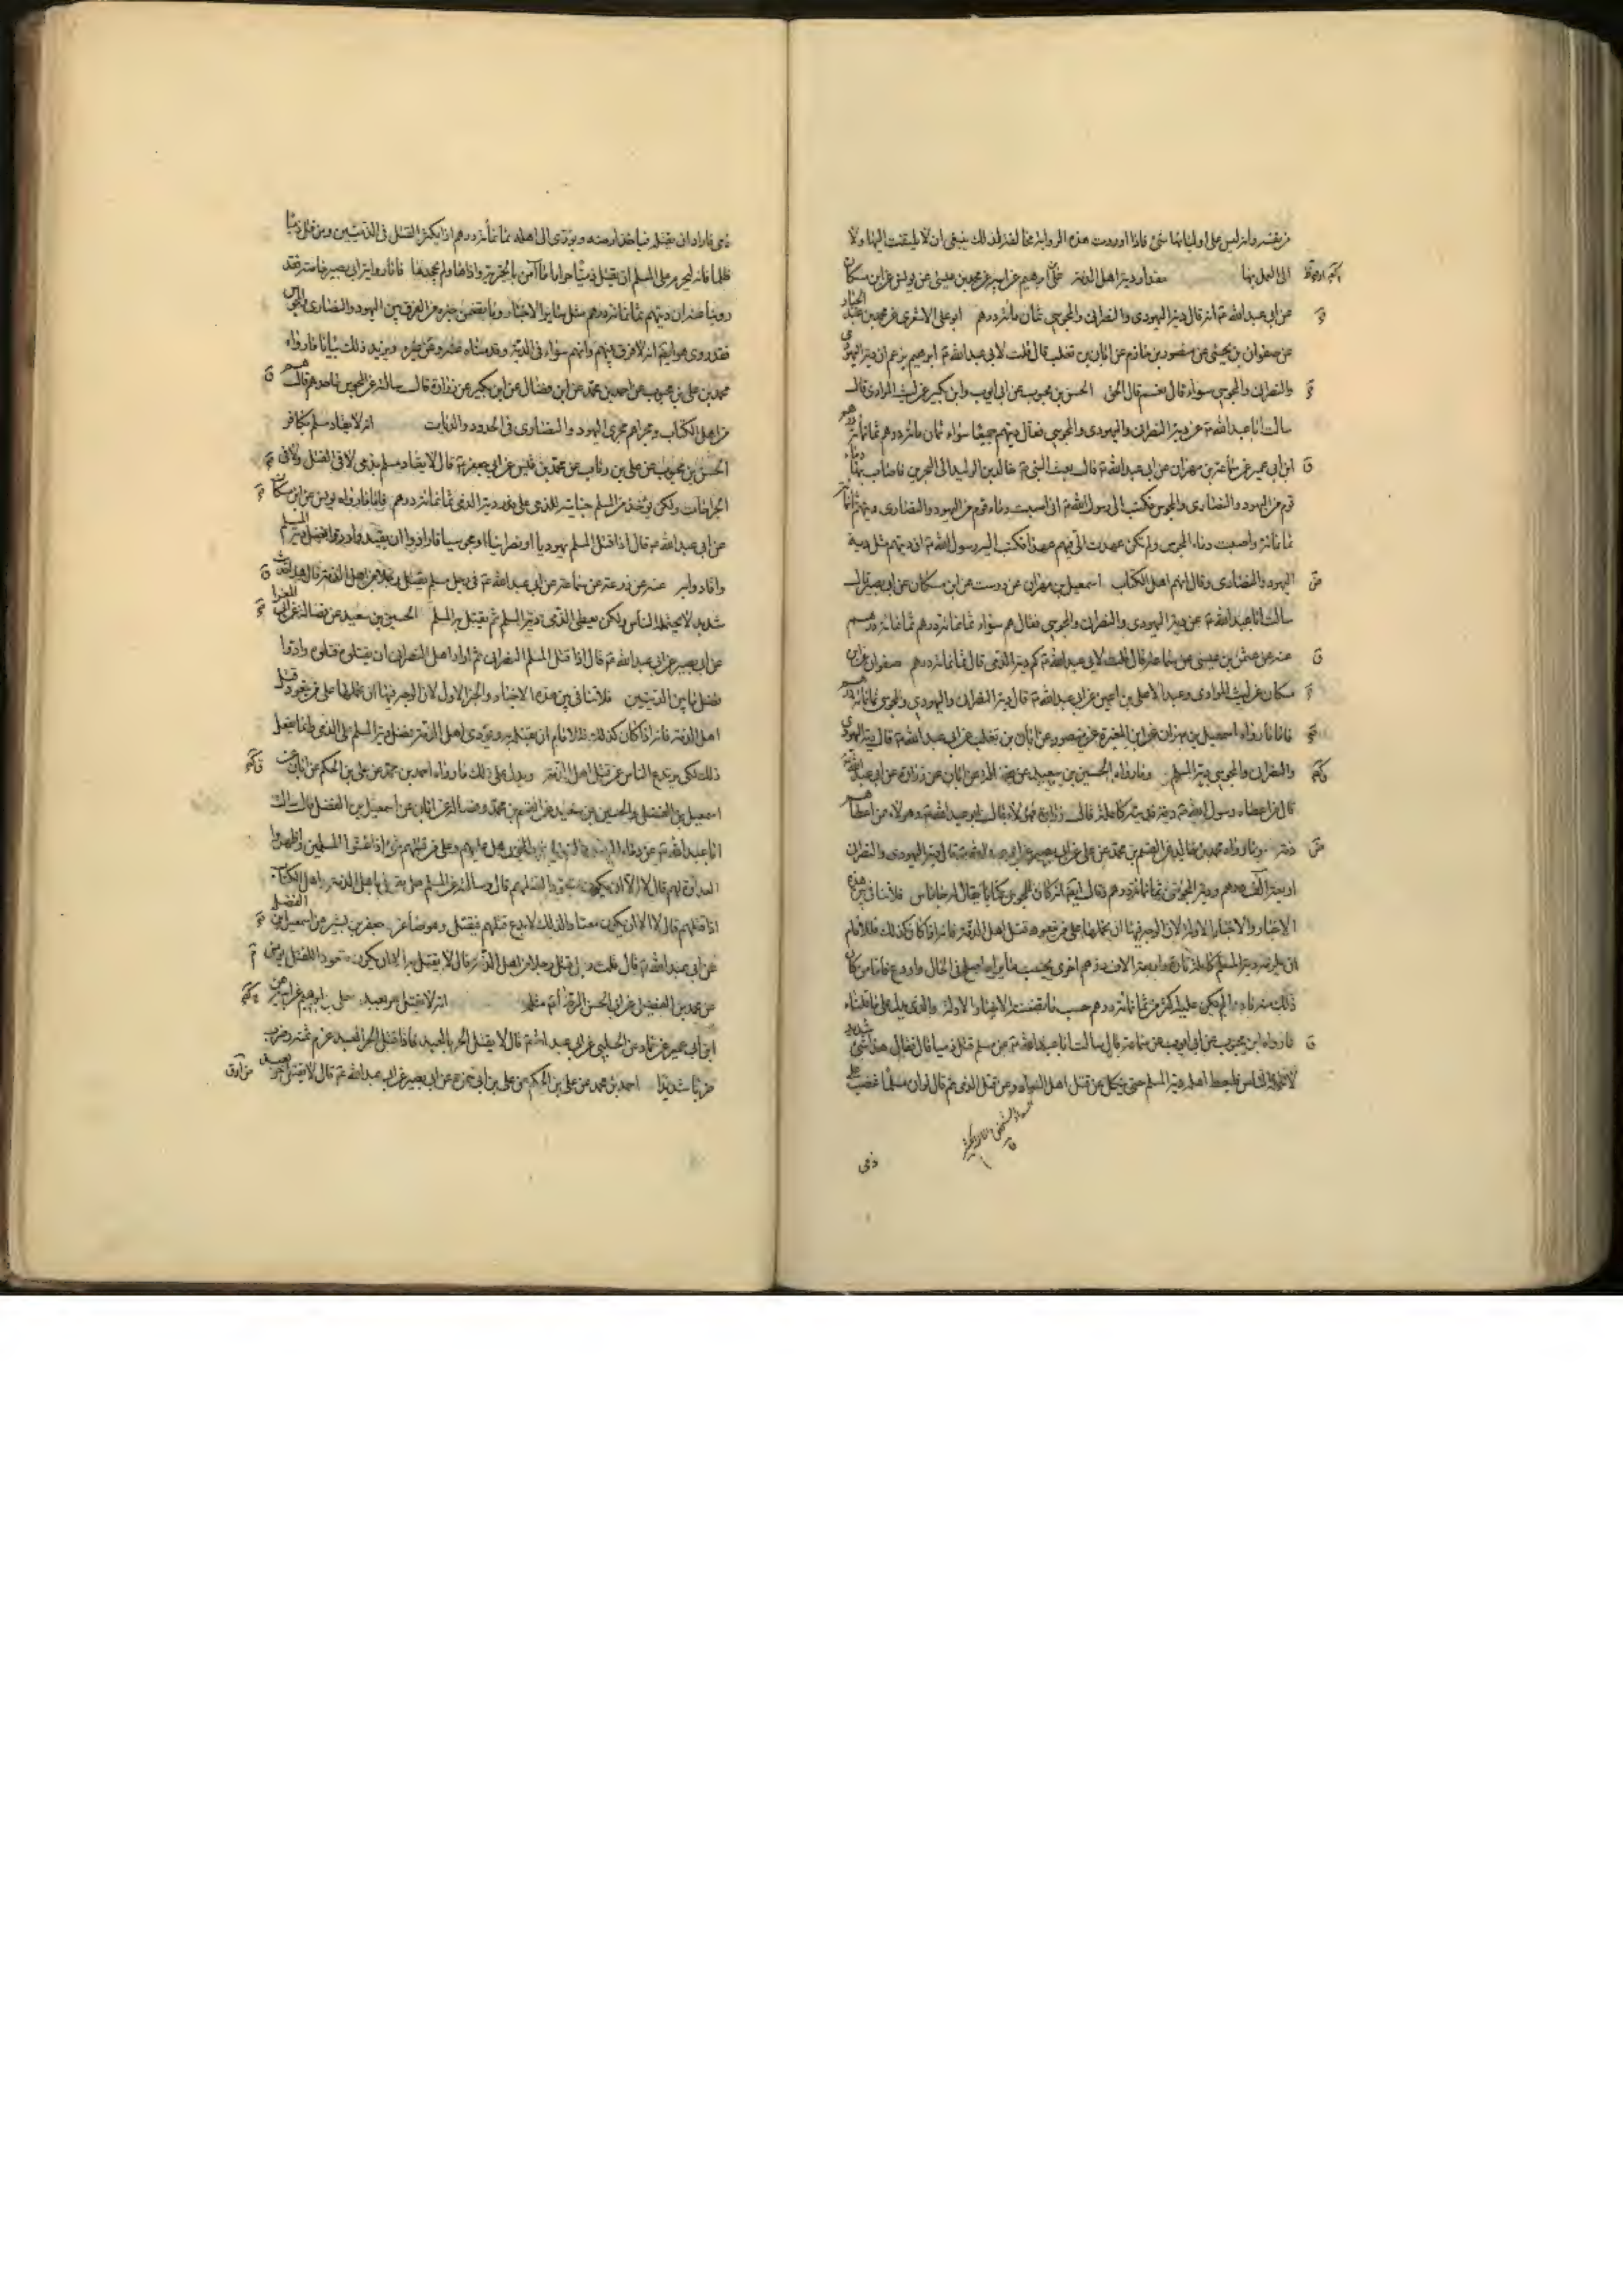 من نفسه وانه ليس على اوليائها شئ فاذا اوردت هذه الرواية مخالفة لذلك ينبغي ان لا يلتفت اليها ولا
الى العمل بها مقدار دية اهل الذمة على بن ابرهيم عن ابيه عن محمد بن عيسى عن يونس عن ابن مسكان
عن ابي عبد الله ع انه قال دية اليهودي والنصراني والمجوسي ثمان مائة درهم ابو على الاشعري عن محمد بن عبد الجبار
عن صفوان بن يحيى عن منصور بن حازم عن ابان بن تغلب قال قلت لابي عبد الله ع ابرهيم يزعم ان دية اليهودي
والنصراني والمجوسي سواء قال نعم قال الحق الحسن بن محبوب عن ابي ايوب وابن بكير عن ليث المرادي قال
سالت ابا عبد الله ع عن دية النصراني واليهودي والمجوسي فقال ديتهم جميعا سواء ثمان مائة درهم ثمانمائة درهم
ابن ابي عمير عن سماعة بن مهران عن ابي عبد الله ع قال بعث النبي ص خالد بن الوليد الى البحرين فاصاب بها دماء
قوم من اليهود والنصارى والمجوس فكتب الى رسول الله ص اني اصبت دماء قوم من اليهود والنصارى فوديتهم ثمانمائة
ثمانمائة واصبت دماء المجوس ولم تكن عهدت الي فيهم عهدا فكتب اليه رسول الله ص ان ديتهم مثل دية
اليهود والنصارى وقال انهم اهل الكتاب اسمعيل بن مهران عن درست عن ابن مسكان عن ابي بصير قال
سالت ابا عبد الله ع عن دية اليهودي والنصراني والمجوسي فقال هم سواء ثمانمائة درهم ثمانمائة درهم
عنه عن عثمن بن عيسى عن سماعة قال قلت لابي عبد الله ع كم دية الذمي قال ثمانمائة درهم صفوان عن ابن
مسكان عن ليث المرادي وعبد الاعلى بن اعين عن ابي عبد الله ع قال دية النصراني واليهودي والمجوسي ثمانمائة درهم
فاما ما رواه اسمعيل بن مهران عن ابن المغيرة عن منصور عن ابان بن تغلب عن ابي عبد الله ع قال دية اليهودي
والنصراني والمجوسي دية المسلم وما رواه الحسين بن سعيد عن فضالة عن ابان عن زرارة عن ابي عبد الله ع
قال من اعطاه رسول الله ص ذمة فديته كاملة قال زرارة فهؤلاء قال ابو عبد الله ع وهولاء من اعطاهم
ذمة وما رواه محمد بن خالد عن القسم بن محمد عن على عن ابي بصير عن ابي عبد الله ع قال دية اليهودي والنصراني
اربعة آلاف درهم ودية المجوسي ثمانمائة درهم وقال ايضا انه كان للمجوس كتابا يقال له جاماس فلا تنافي بين هذه
الاخبار والاخبار الاولة لان الوجه فيها ان نحملها على من تعود قتل اهل الذمة فانه اذا كان كذلك فللامام
ان يلزمه دية المسلم كاملة تارة واربعة الاف درهم اخرى بحسب ما يراه اصلح في الحال واردع فاما من كان
ذلك منه نادرا لم يكن عليه اكثر من ثمانمائة درهم حسب ما تضمنته الاخبار الاولة والذي يدل على ما قلناه
ما رواه ابن محبوب عن ابي ايوب عن سماعة قال سالت ابا عبد الله ع عن مسلم قتل ذميا قال فقال هذا شئ شديد
لا يحتمله الناس فليعط اهله دية المسلم حتى ينكل عن قتل اهل السواد وعن قتل الذمي ثم قال لو ان مسلما غضب على
ذمي
ذمي فاراد ان يقتله فياخذ ارضه ويؤدي الى اهله ثمانمائة درهم اذا يكثر القتل في الذميين ومن قتل ذميا
ظلما فانه ليحرم على المسلم ان يقتل ذميا حراما ما آمن بالجزية واداها ولم يجحدها فاما رواية ابي بصير خاصة فقد
روينا عنه ان ديتهم ثمانمائة درهم مثل ساير الاخبار وما تضمن خبره من الفرق بين اليهود والنصارى والمجوس
فقد روى هو ايضا انه لا فرق بينهم وانهم سواء في الدية وقد قدمناه عنه وعن غيره ويزيد ذلك بيانا ما رواه
محمد بن على بن محبوب عن احمد بن محمد عن ابن فضال عن ابن بكير عن زرارة قال سالته عن المجوس ما حدهم قال هم
من اهل الكتاب ومجراهم مجرى اليهود والنصارى في الحدود والديات انه لا يقاد مسلم بكافر
الحسن بن محبوب عن على بن رئاب عن محمد بن قيس عن ابي جعفر ع قال لا يقاد مسلم بذمي لا في القتل ولا في
الجراحات ولكن يؤخذ من المسلم جنايته للذمي على قدر دية الذمي ثمانمائة درهم فاما ما رواه يونس عن ابن مسكان
عن ابي عبد الله ع قال اذا قتل المسلم يهوديا او نصرانيا او مجوسيا فارادوا ان يقيدوا ردوا فضل دية المسلم
واقادوا به عنه عن زرعة عن سماعة عن ابي عبد الله ع في رجل مسلم يقتل رجلا من اهل الذمة قال هذا حديث
شديد لا يحتمله الناس ولكن يعطي الذمي دية المسلم ثم يقتل به المسلم الحسين بن سعيد عن فضالة عن ابي المعزا
عن ابي بصير عن ابي عبد الله ع قال اذا قتل المسلم النصراني ثم اراد اهل النصراني ان يقتلوه قتلوه وادوا
فضل ما بين الديتين فلا تنافي بين هذه الاخبار والخبر الاول لان الوجه فيها ان نحملها على من تعود قتل
اهل الذمة فانه اذا كان كذلك فللامام ان يقتله به ويؤدي اهل الذمة فضل دية المسلم على الذمي وانما يفعل
ذلك لكي يرتدع الناس عن قتل اهل الذمة ويدل على ذلك ما رواه احمد بن محمد عن على بن الحكم عن ابان عن
اسمعيل بن الفضل والحسين بن سعيد عن القسم بن محمد وفضالة عن ابان عن اسمعيل بن الفضل قال سالت
ابا عبد الله ع عن دماء المجوس واليهود والنصارى هل عليهم وعلى من قتلهم شئ اذا غشوا المسلمين واظهروا
العداوة لهم قال لا الا ان يكون متعودا لقتلهم قال وسالته عن المسلم هل يقتل باهل الذمة واهل الكتاب
اذا قتلهم قال لا الا ان يكون معتادا لذلك لا يدع قتلهم فيقتل وهو صاغر جعفر بن بشير عن اسمعيل بن الفضل
عن ابي عبد الله ع قال قلت رجل قتل رجلا من اهل الذمة قال لا يقتل به الا ان يكون متعودا للقتل يونس
عن محمد بن الفضيل عن ابي الحسن الرضا ع مثله انه لا يقتل حر بعبد على بن ابرهيم عن ابيه عن
ابن ابي عمير عن حماد عن الحلبي عن ابي عبد الله ع قال لا يقتل الحر بالعبد فاذا قتل الحر العبد غرم ثمنه وضرب
ضربا شديدا احمد بن محمد عن على بن الحكم عن على بن ابي حمزة عن ابي بصير عن ابي عبد الله ع قال لا يقتل حر بعبد